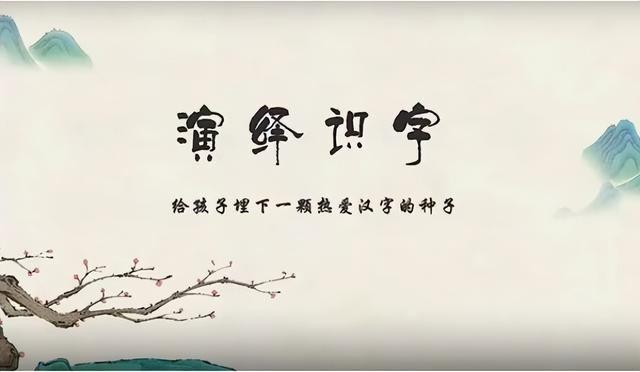 演绎识字
给孩子埋下一颗热爱汉字的种子